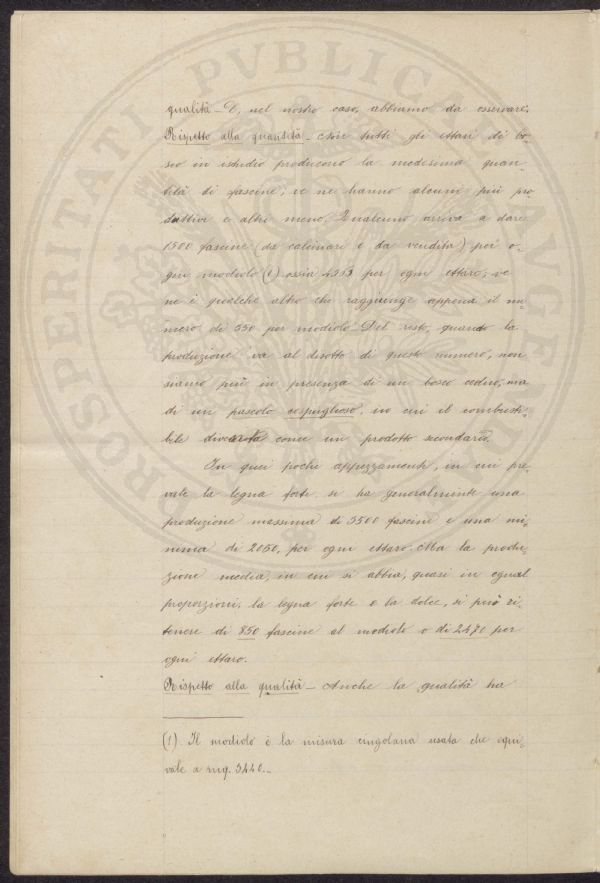 qualità_ E, nel nostro caso, abbiamo da osservare:
Rispetto alla quantità_ Non tutti gli ettari di bo-
sco in istudio producono la medesima quan-
tità di fascine; ve ne hanno alcuni più pro-
duttivi e altri meno. Qualcuno arriva a dare
1500 fascine (da calcinari e da vendita) per o-
gni modiolo (1) ossia 4353 per ogni ettaro; ve
ne è qualche altro che raggiunge appena il nu-
mero di 350 per modiolo. Del resto, quando la
produzione va al disotto di questo numero, non
siamo più in presenza di un bosco ceduo, ma
di un pascolo cespuglioso, in cui il combusti-
bile diventa come un prodotto secondario.
In quei pochi appezzamenti, in cui pre-
vale la legna forte si ha generalmente una
produzione massima di 3500 fascine e una mi-
nima di 2050, per ogni ettaro. Ma la produ-
zione media, in cui si abbia, quasi in egual
proporzioni, la legna forte e la dolce, si può ri-
tenere di 850 fascine al modiolo o di 2471 per
ogni ettaro.
Rispetto alla qualità_ Anche la qualità ha
(1) Il modiolo è la misura cingolana usata che equi-
vale a mq. 3440._
PROSPERITATI PVBLICAE AVGENDAE